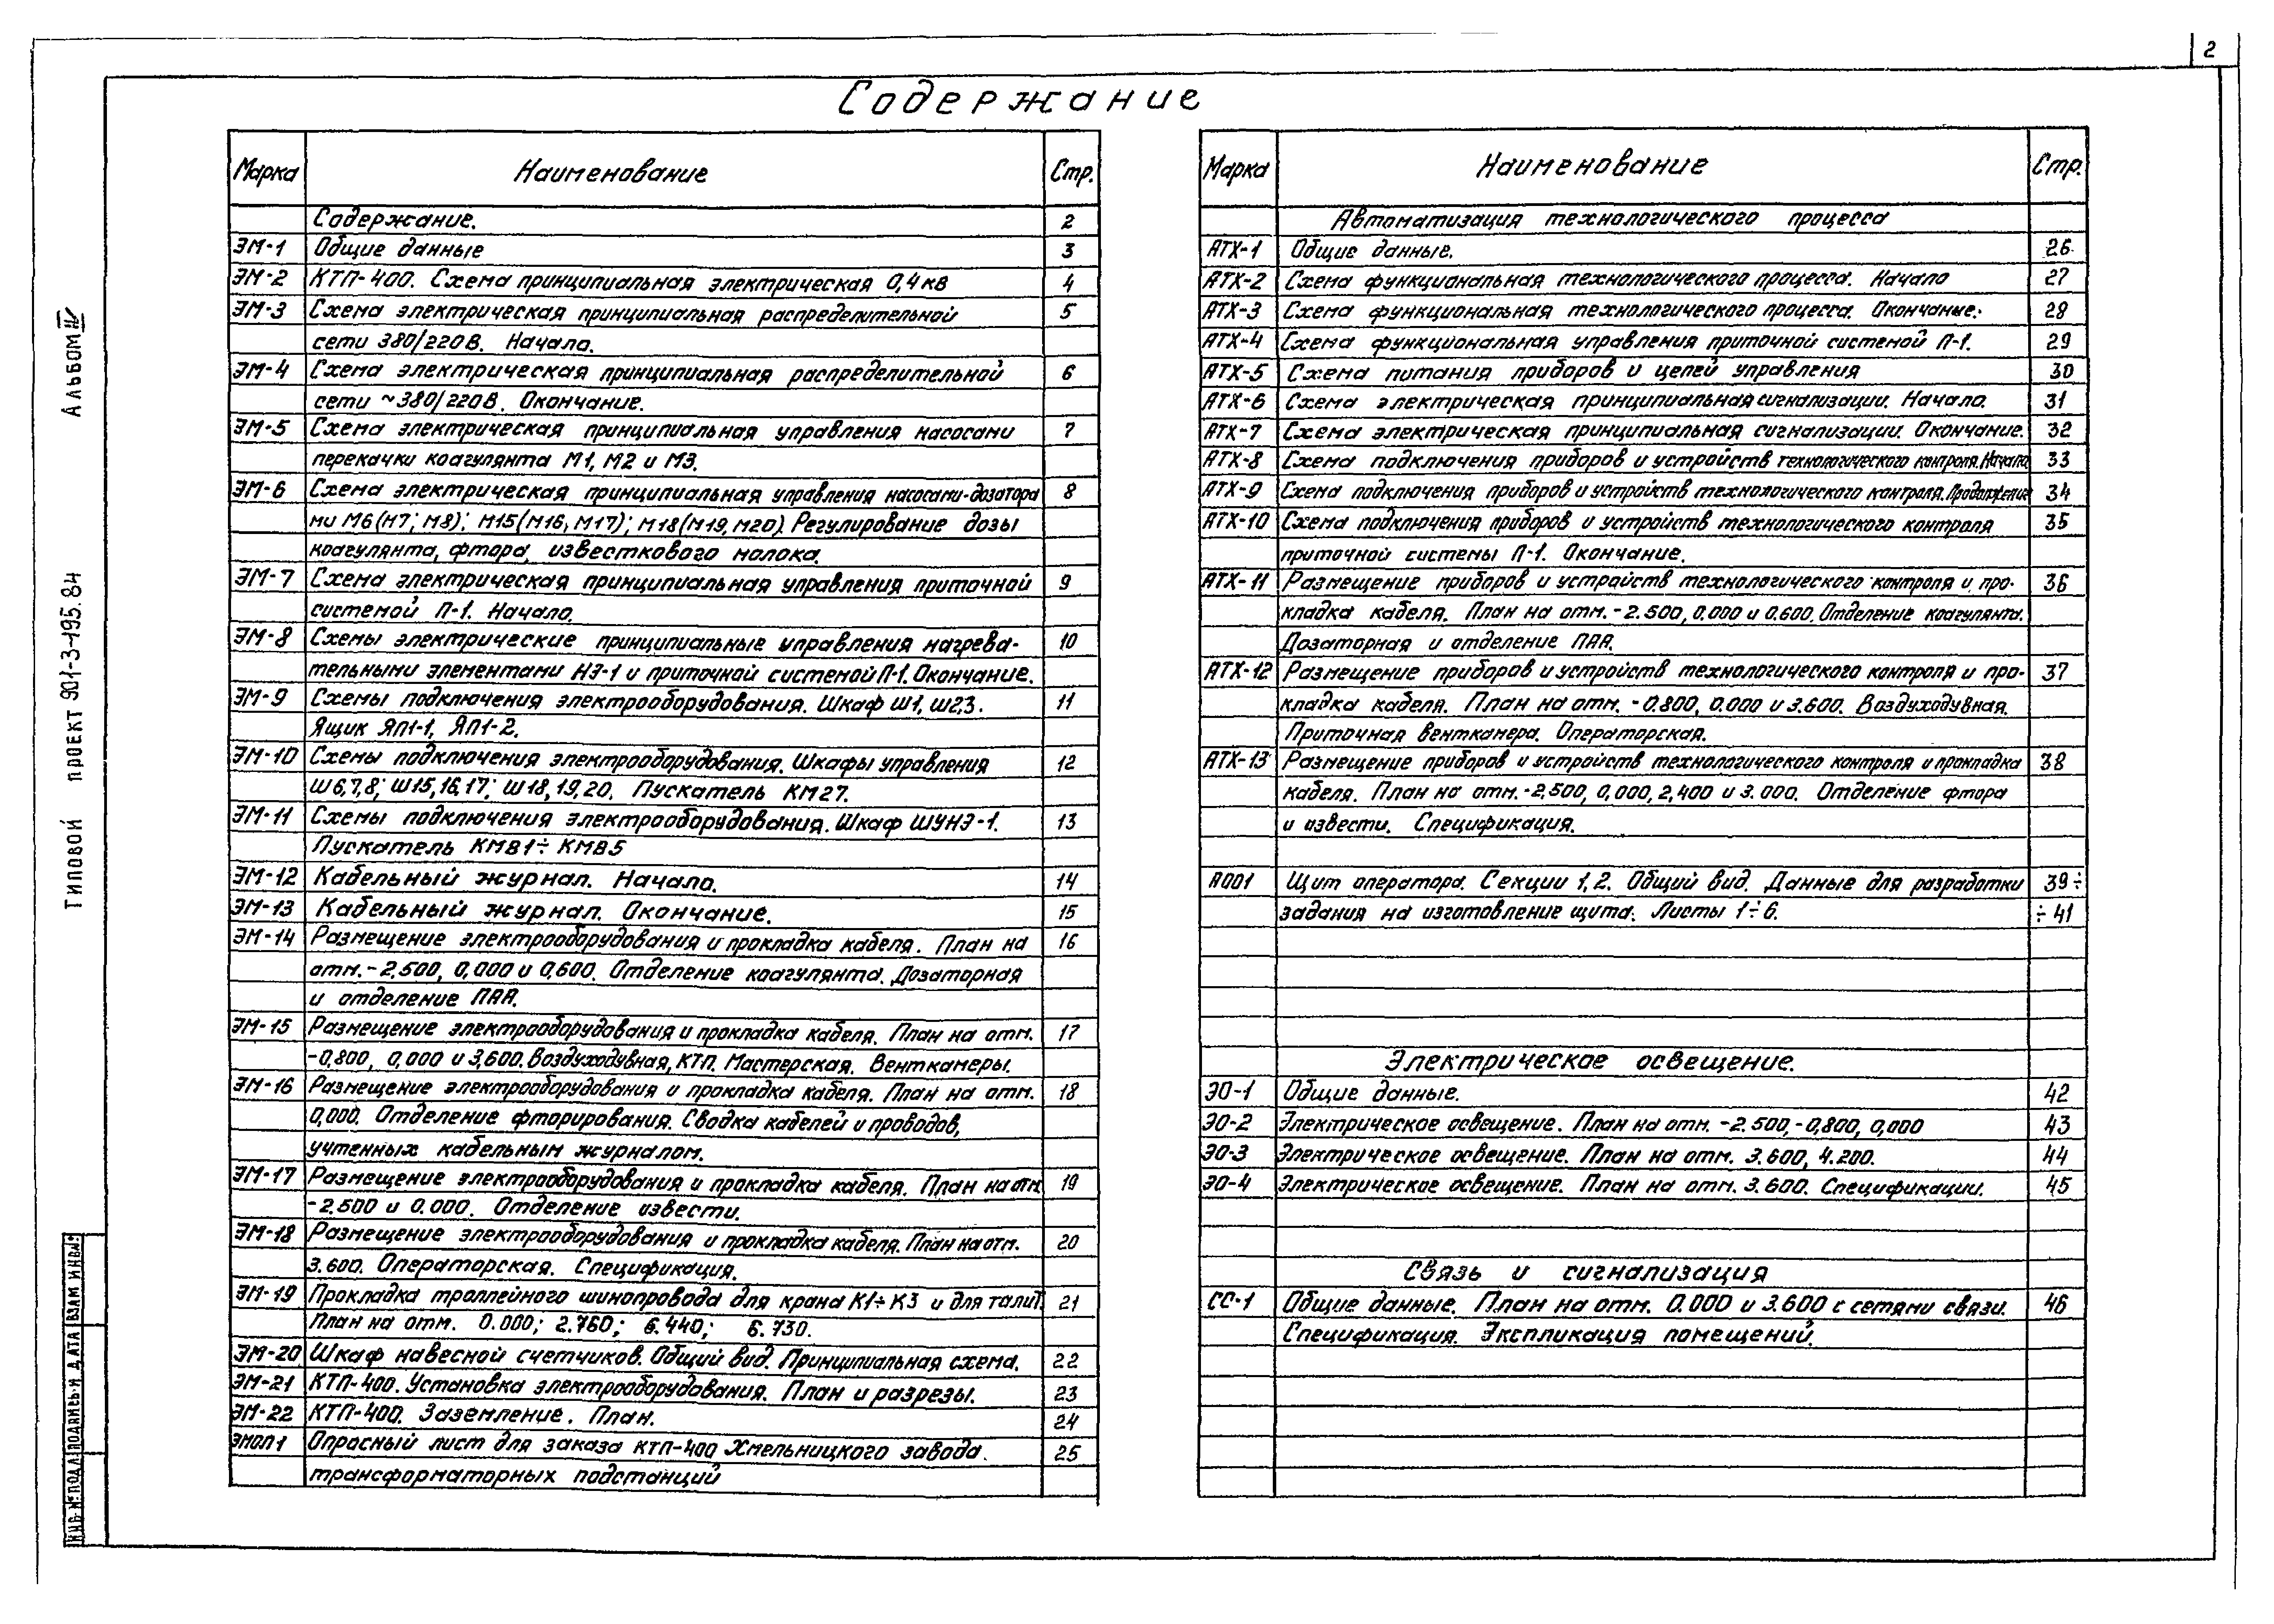 2
Содержание
Марка Наименование Стр.
Содержание. 2
ЭМ-1 Общие данные 3
ЭМ-2 КТП-400. Схема принципиальная электрическая 0,4кв 4
ЭМ-3 Схема электрическая принципиальная распределительной 5
сети 380/220В. Начало.
ЭМ-4 Схема электрическая принципиальная распределительной 6
сети ~380/220В. Окончание.
ЭМ-5 Схема электрическая принципиальная управления насосами 7
перекачки коагулянта М1, М2 и М3.
ЭМ-6 Схема электрическая принципиальная управления насосами-дозатора 8
ми М6(М7; М8); М15(М16, М17); М18(М19, М20) Регулирование дозы
коагулянта, фтора, известкового молока.
ЭМ-7 Схема электрическая принципиальная управления приточной 9
системой П-1. Начало.
ЭМ-8 Схемы электрические принципиальные управления нагрева- 10
тельными элементами НЭ-1 и приточной системой П-1. Окончание.
ЭМ-9 Схемы подключения электрооборудования. Шкаф Ш1, Ш2,3. 11
Ящик ЯП1-1, ЯП1-2.
ЭМ-10 Схемы подключения электрооборудования. Шкафы управления 12
Ш6,7,8; Ш15,16,17; Ш18,19,20. Пускатель КМ27.
ЭМ-11 Схемы подключения электрооборудования. Шкаф ШУНЭ-1. 13
Пускатель КМВ1÷КМВ5
ЭМ-12 Кабельный журнал. Начало. 14
ЭМ-13 Кабельный журнал. Окончание. 15
ЭМ-14 Размещение электрооборудования и прокладка кабеля. План на 16
отм.-2.500, 0,000 и 0,600. Отделение коагулянта. Дозаторная
и отделение ПАА.
ЭМ-15 Размещение электрооборудования и прокладка кабеля. План на отм. 17
-0.800, 0,000 и 3,600. Воздуходувная, КТП. Мастерская. Венткамеры.
ЭМ-16 Размещение электрооборудования и прокладка кабеля. План на отм. 18
0,000. Отделение фторирования. Сводка кабелей и проводов,
учтенных кабельным журналом.
ЭМ-17 Размещение электрооборудования и прокладка кабеля. План на отм 19
-2.500 и 0.000. Отделение извести.
ЭМ-18 Размещение электрооборудования и прокладка кабеля. План на отм. 20
3.600. Операторская. Спецификация.
ЭМ-19 Прокладка троллейного шинопровода для крана К1÷К3 и для талит. 21
План на отм. 0.000; 2.760; 6.440; 6.730.
ЭМ-20 Шкаф навесной счетчиков. Общий вид. Принципиальная схема. 22
ЭМ-21 КТП-400. Установка электрооборудования. План и разрезы. 23
ЭМ-22 КТП-400. Заземление. План. 24
ЭМОЛ1 Опросный лист для заказа КТП-400 Хмельницкого завода. 25
трансформаторных подстанций
Марка Наименование Стр.
Автоматизация технологического процесса
АТХ-1 Общие данные. 26
АТХ-2 Схема функциональная технологического процесса. Начало 27
АТХ-3 Схема функциональная технологического процесса. Окончание. 28
АТХ-4 Схема функциональная управления приточной системой П-1. 29
АТХ-5 Схема питания приборов и цепей управления 30
АТХ-6 Схема электрическая принципиальная сигнализации. Начало. 31
АТХ-7 Схема электрическая принципиальная сигнализации. Окончание. 32
АТХ-8 Схема подключения приборов и устройств технологического контроля. Начало 33
АТХ-9 Схема подключения приборов и устройств технологического контроля. Продолжение 34
АТХ-10 Схема подключения приборов и устройств технологического контроля 35
приточной системы П-1. Окончание.
АТХ-11 Размещение приборов и устройств технологического контроля и про- 36
кладка кабеля. План на отм.-2.500, 0.000 и 0.600. Отделение коагулянта.
Дозаторная и отделение ПАА.
АТХ-12 Размещение приборов и устройств технологического контроля и про- 37
кладка кабеля. План на отм. -0,800, 0,000 и 3.600. Воздуходувная.
Приточная венткамера. Операторская.
АТХ-13 Размещение приборов и устройств технологического контроля и прокладка 38
кабеля. План на отм.-2,500, 0,000, 2,400 и 3.000. Отделение фтора
и извести. Спецификация.
А001 Щит оператора. Секции 1, 2. Общий вид. Данные для разработки 39÷
задания на изготовление щита. Листы 1÷6. ÷41
Электрическое освещение.
ЭО-1 Общие данные. 42
ЭО-2 Электрическое освещение. План на отм. -2.500,-0,800, 0,000 43
ЭО-3 Электрическое освещение. План на отм. 3.600, 4.200. 44
ЭО-4 Электрическое освещение. План на отм. 3.600. Спецификации. 45
Связь и сигнализация
СС-1 Общие данные. План на отм. 0.000 и 3.600 с сетями связи. 46
Спецификация. Экспликация помещений.
Типовой проект 901-3-195.84 Альбом IV
ИНВ.№ПОДЛ ПОДПИСЬ И ДАТА ВЗАМ ИНВ.№